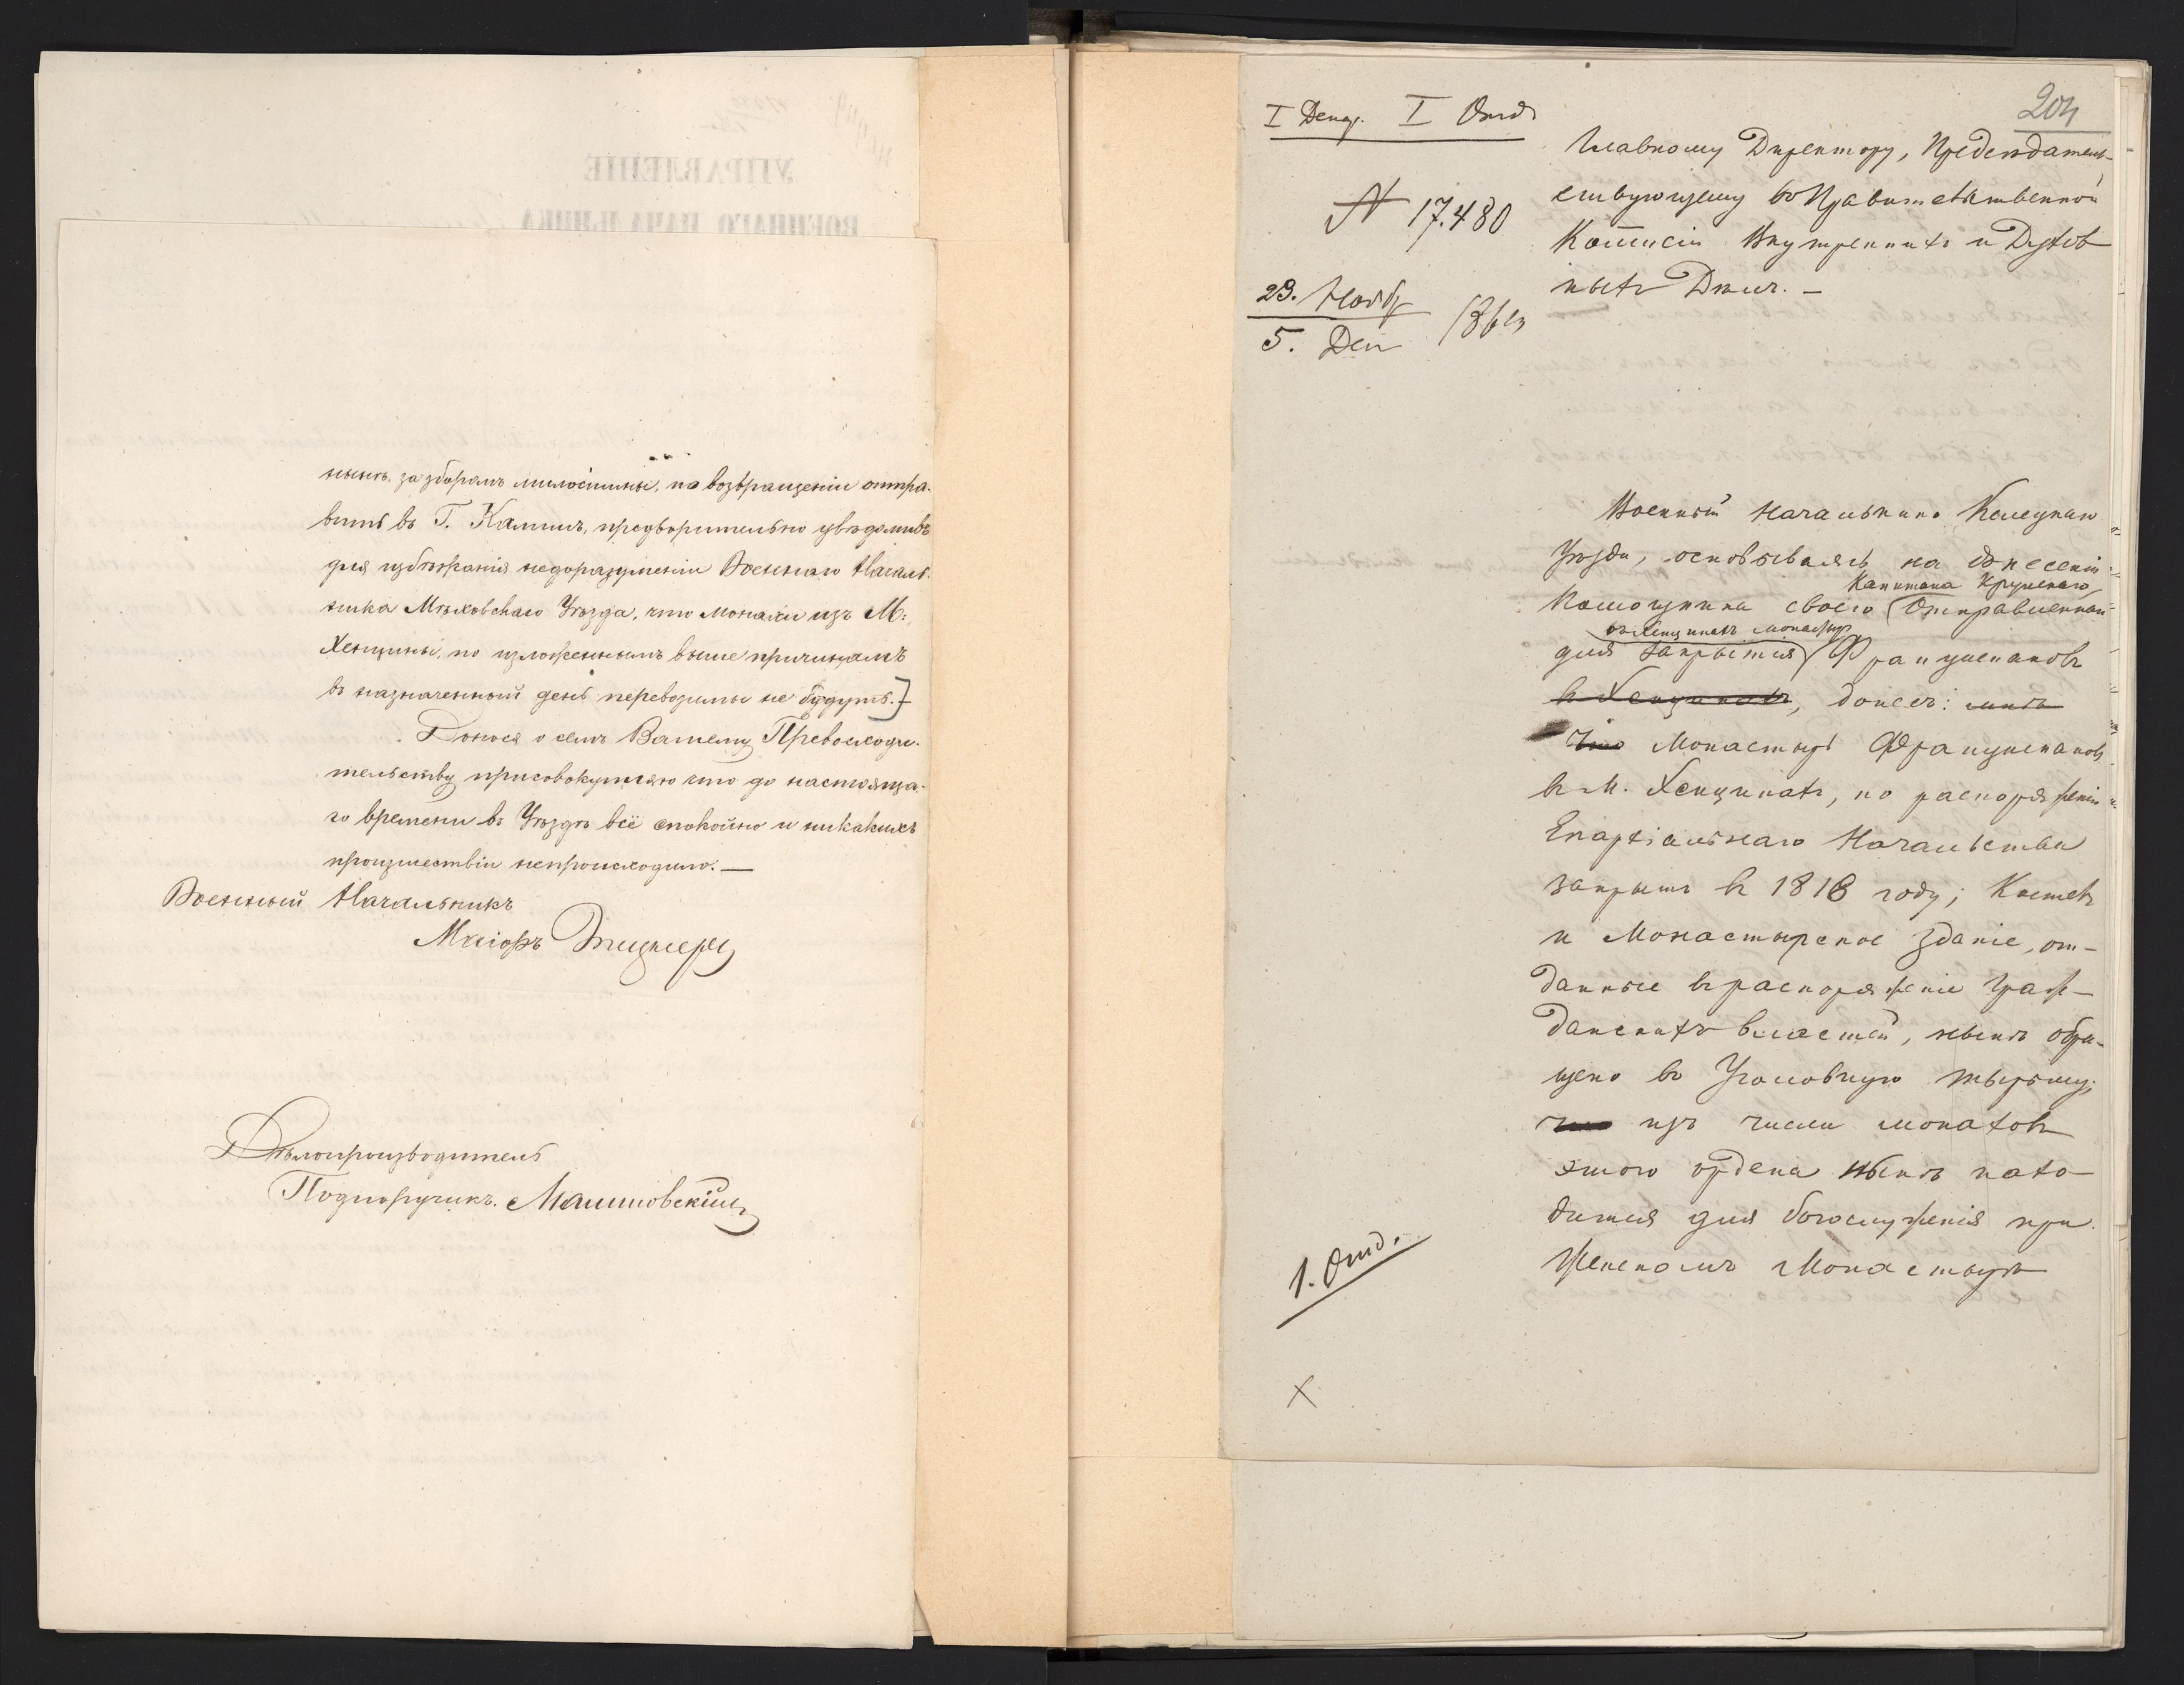 нынѣ за зборамъ милостины, по возвращеніи отпра-
вить въ Г. Калишъ, предворительно увѣдомивъ
для избѣжанія недоразуменіи Военнаго Началь-
ника Мѣховскаго Уѣзда, что монахи изъ М:
Хенцины, по изложеннымъ выше причинамъ
въ назначенный день перевозимы не будутъ.]
Донося о семъ Вашему Превосходи-
тельству присовокупляю что до настояща-
го времени въ Уѣздѣ всё спокойно и никакихъ
произшествіи непроисходило. —
Военный Начальникъ
Маіоръ
Дѣлопроизводитель
Подпоручикъ. Машновскій
I Деп. I Отд
204
№ 17.480
23. Нояб
5. Дек 1864
Главному Директору, Предсѣдатель-
ствующему въ Правительственной
Комисіи Внутреннихъ и Духов
ныхъ Дѣлъ. —
Военный Начальникъ Келецкаго
Уѣзда, основываясь на донесеніи
Капитана
Помощника своего (Отправленнаго
въ Хенцинахъ монастыря
для закрытія) Францискановъ
в Хенцинахъ, донесъ:
что Монастырь Францискановъ
в м. Хенцинахъ, по распоряженію
Епархіальнаго Начальства
закрытъ в 1818 году; Костелъ
и Монастырское зданіе, от-
данные в распоряженіе граж-
данскихъ властей, нынѣ обра-
щено во Уголовную тюрьму;
что изъ числа монаховъ
этого ордена нынѣ нахо-
дится для богослуженія при
Женскомъ Монастырѣ
1. Отд.
X